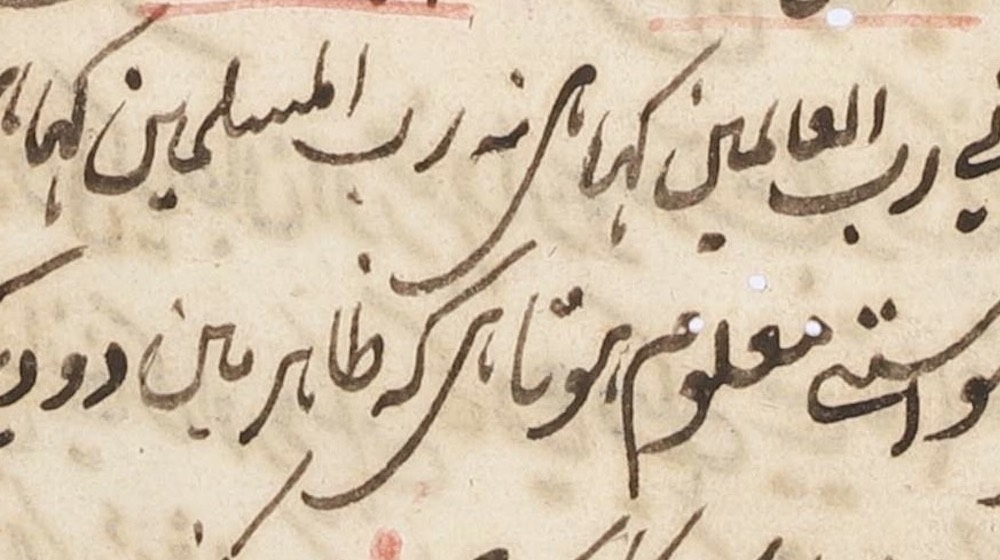 نے رب العالمین کہا ہی نہ رب المسلمین کہا
استے معلوم ہوتا ہی کہ ظاہر مین دو